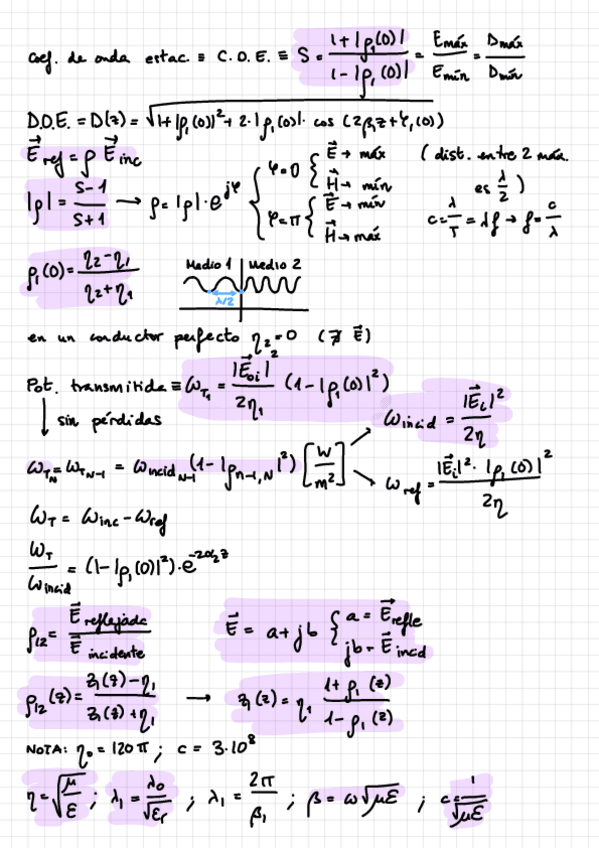 coef. de onda estac. ≡ C.O.E. ≡ S = (1+|ρ₁(0)|)/(1-|ρ₁(0)|) = Emáx/Emín = Dmáx/Dmín
D.O.E. = D(z) = √(1+|ρ₁(0)|²+2·|ρ₁(0)|·cos(2β₁z+φ₁(0)))
E⃗ref = ρ E⃗inc
|ρ| = (S-1)/(S+1) → ρ = |ρ|·e^{jφ}
φ=0 { E⃗ → máx
H⃗ → mín
φ=π { E⃗ → mín
H⃗ → máx
(dist. entre 2 máx.
es λ/2)
c = λ/T = λf → f = c/λ
ρ₁(0) = (η₂-η₁)/(η₂+η₁)
Medio 1 Medio 2
λ/2
en un conductor perfecto η₂=0 (∄ E⃗)
Pot. transmitida ≡ ω_T₁ = |E⃗oi|²/2η₁ (1-|ρ₁(0)|²)
↓ sin pérdidas
ωincid = |E⃗i|²/2η
ω_TN = ω_TN-1 = ωincid N-1 (1-|ρn-1,N|²) [W/m²]
ωref = |E⃗i|²·|ρ₁(0)|²/2η
ω_T = ωinc - ωref
ω_T/ωincid = (1-|ρ₁(0)|²)·e^{-2α₂z}
ρ₁₂ = E⃗ reflejada / E⃗ incidente
E⃗ = a + jb { a = E⃗refle
jb = E⃗incid
ρ₁₂(z) = (z₁(z)-η₁)/(z₁(z)+η₁) → z₁(z) = η₁ (1+ρ₁(z))/(1-ρ₁(z))
NOTA: η₀ = 120π ; c = 3·10⁸
η = √(μ/ε) ; λ₁ = λ₀/√εr ; λ₁ = 2π/β₁ ; β = ω√με ; c = 1/√με